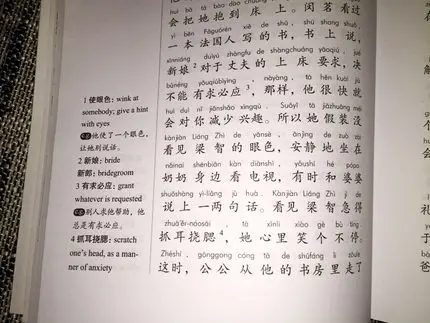 huì bǎ tā bào dào chuáng shàng.
会把她抱到床上。闵茗看过
yì běn Fǎguórén xiě de shū, shū shang shuō,
一本法国人写的书，书上说，
xīnniáng duìyú zhàngfu de chuángshang yāoqiú, jué
新娘2对于丈夫的床上要求，决
bùnéng yǒuqiúbìyìng, nàyàng, tā hěn kuài jiù
不能有求必应3，那样，他很快就
huì duì nǐ jiǎnshǎo xìngqù. Suǒyǐ tā jiǎzhuāng méi
会对你减少兴趣。所以她假装没
kànjiàn Liáng Zhì de yǎnsè, ānjìng de zuò zài
看见梁智的眼色，安静地坐在
nǎinai shēnbiān kàn diànshì, yǒushí hé pópo
奶奶身边看电视，有时和婆婆
shuōshàng yì-liǎng jù huà. Kànjiàn Liáng Zhì jí de
说上一两句话。看见梁智急得
zhuā'ěr-náosāi, tā xīnli xiào gè bù tíng
抓耳挠腮4，她心里笑个不停。
Zhèshí, gōnggong cóng tā de shūfáng li zǒule
这时，公公从他的书房里走了
1 使眼色: wink at
somebody; give a hint
with eyes
他使了一个眼色，
让她别说话。
2 新娘: bride
新郎: bridegroom
3 有求必应: grant
whatever is requested
别人求他帮助，他
总是有求必应。
4 抓耳挠腮: scratch
one's head, as a man-
ner of anxiety